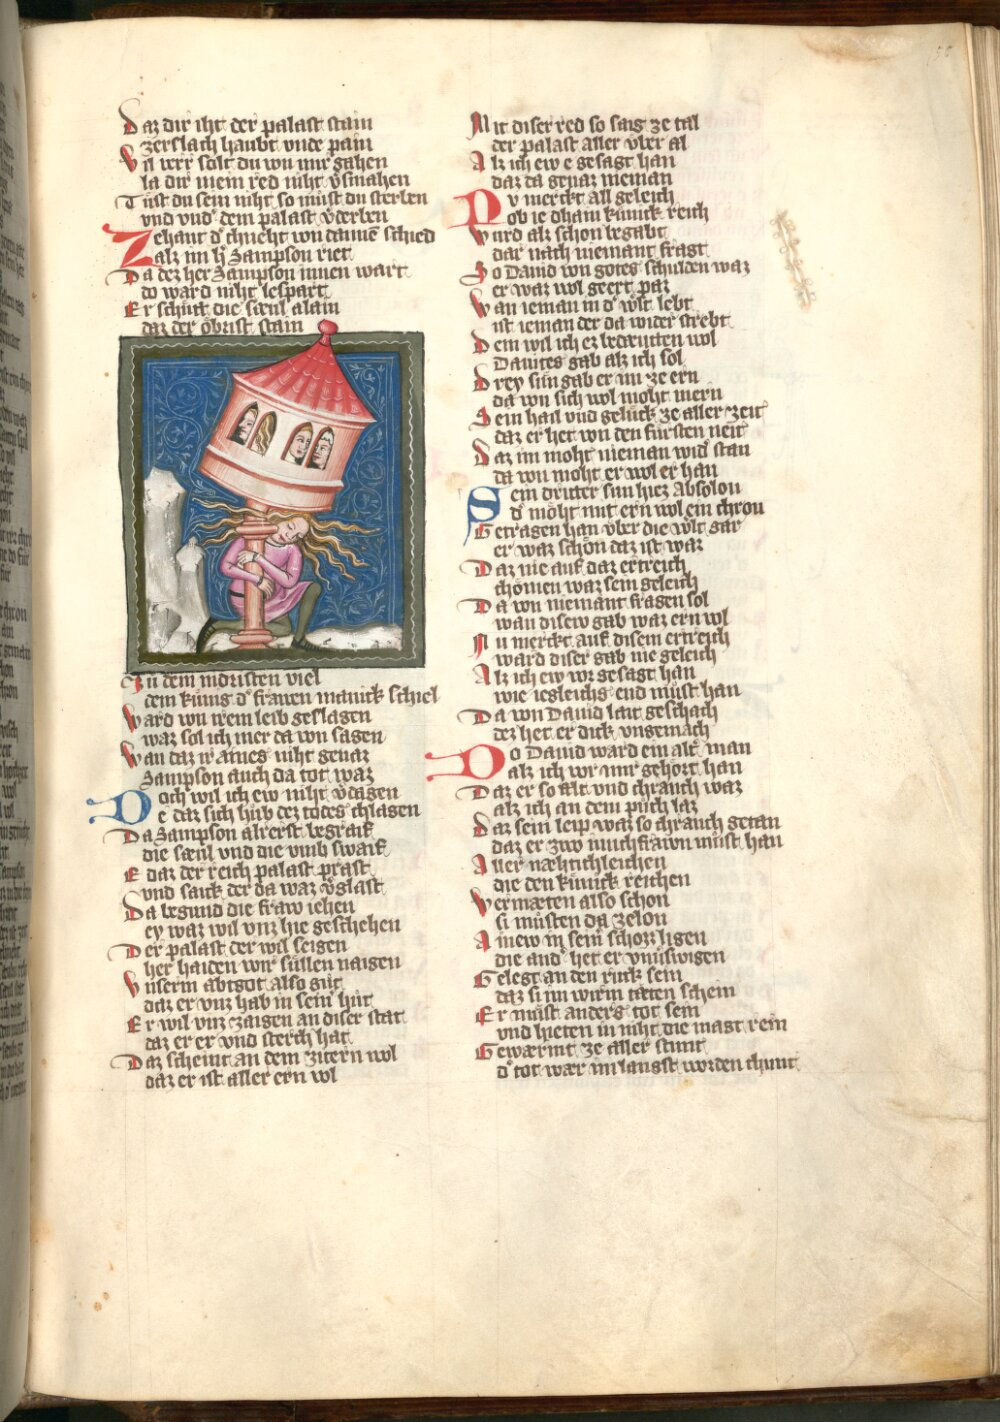 Daz dir iht der palast stain
zerslach haubt vnde pain
Vil verr solt du von mir gahen
la dir mein red niht v̄smahen
Tust du sein niht so must du sterben
vnd vnd̾ dem palast v̾derben
Zehant d̾ chneht von dannē schied
alz im h̾ Sampson riet
Da dez her Sampson innen wart
do ward niht lespart
Er schutt die sæul alain
daz der obrist stain
In dem mdristen viel
dem kunig d̾ frawen manick schiel
Ward von irem leib geslagen
waz sol ich mer da von sagen
Wan daz ir aines niht genaz
Sampson auch da tot waz
Doch wil ich ew niht v̾dagen
e daz sich hub dez todes chlagen
Da Sampson alrerst begraif
die sæul vnd die vmb swaif
E daz der reich palast prast
vnd sauk der da waz v̾glast
Da begund die fraw iehen
ey waz wil vnz hie geschehen
Der palast der wil seigen
her haiden wir sullen naigen
Vnserm abtgot also gut
daz er vnz hab in sein hut
Er wil vnz zaigen an diser stat
daz er er vnd sterch hat
Daz scheint an dem zitern wol
daz er ist aller ern vol
Mit diser red so saig ze tal
der palast aller vber al
Alz ich ew e gesagt han
daz da genaz nieman
Nu merckt all geleich
ob ie dhain kunick reich
Wurd alz schon begabt
dar nach niemant fragt
So Dauid von gotes schulden waz
er waz wol geert paz
Wan ieman in d̾ werlt lebt
ist ieman der da wider strebt
Dem wil ich ez bedæutten wol
Dauites gab alz ich sol
Drey sun gab er im ze ern
da von sich wol moht mern
Sein hail vnd geluck ze aller zeit
daz er het von den fursten neit
Daz im moht nieman wid̾ stan
da von moht er wol er han
Sein dritter sun hiez Absolon
d̾ moht mit ern wol ein chron
Getragen han vber die werlt gar
er waz schon daz ist war
Daz nie auf daz ertreich
chomen waz sein geleich
Da von niemant fragen sol
wan disew gab waz ern vol
Nu merckt auf disem ertreich
ward diser gab nie geleich
Alz ich ew vor gesagt han
wie iegleichs end must han
Da von Dauid lait geschach
dez het er dick vngemach
Do Dauid ward ein alt̾ man
alz ich vor mir gehort han
Daz er so alt vnd chranch waz
alz ich an dem puch laz
Daz sein leip waz so chranch getan
daz er zwo iunchfrawn must han
Aller næhtichleichen
die den kunick reichen
Vermæten also schon
si musten da zelon
Ainew in sein̄ schozz ligen
die and̾ het er vnuswigen
Gelegt an den ruck sein
daz si im wirm tæten schein
Er must anders tot sein
vnd hieten in niht die maget rein
Gewærmt ze aller stunt
d̾ tot wær im langst worden chunt